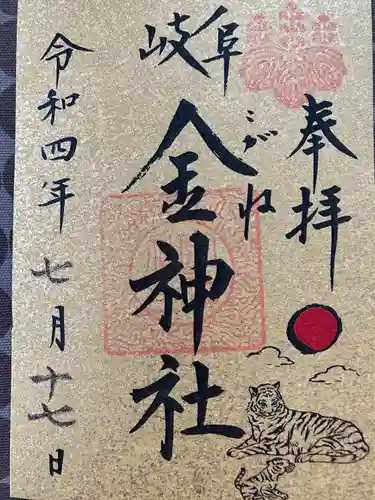 奉拝
岐阜
金神社
こがね
令和四年七月十七日